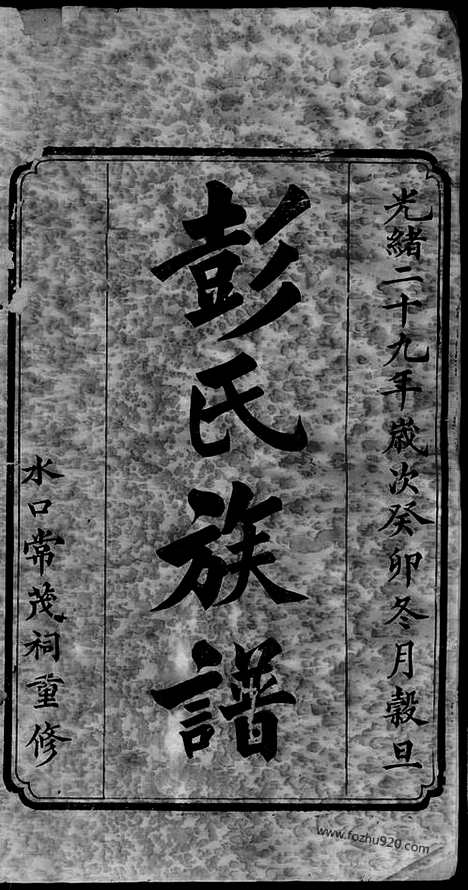 光緒二十九年歲次癸卯冬月穀旦
彭氏族譜
水口常茂祠重修
www.fozhu920.com